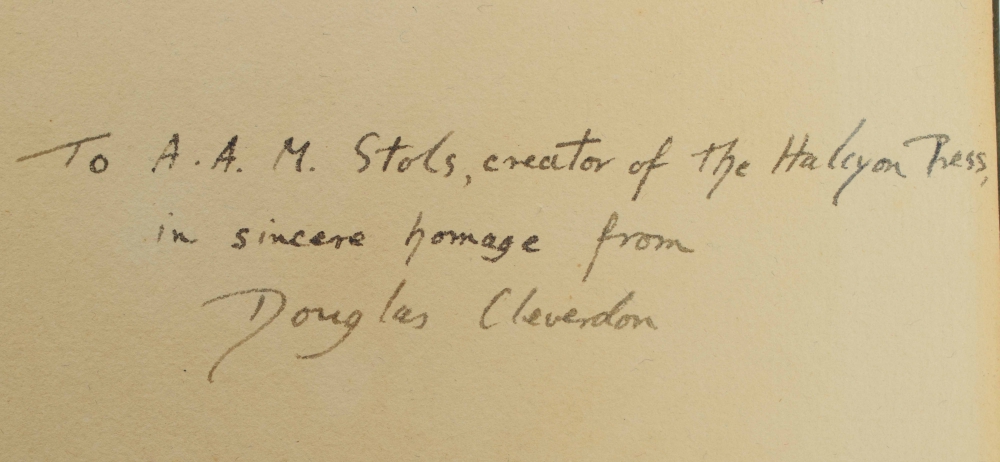 To A. A. M. Stols, creator of the Halcyon Press,
in sincere homage from
Douglas Cleverdon